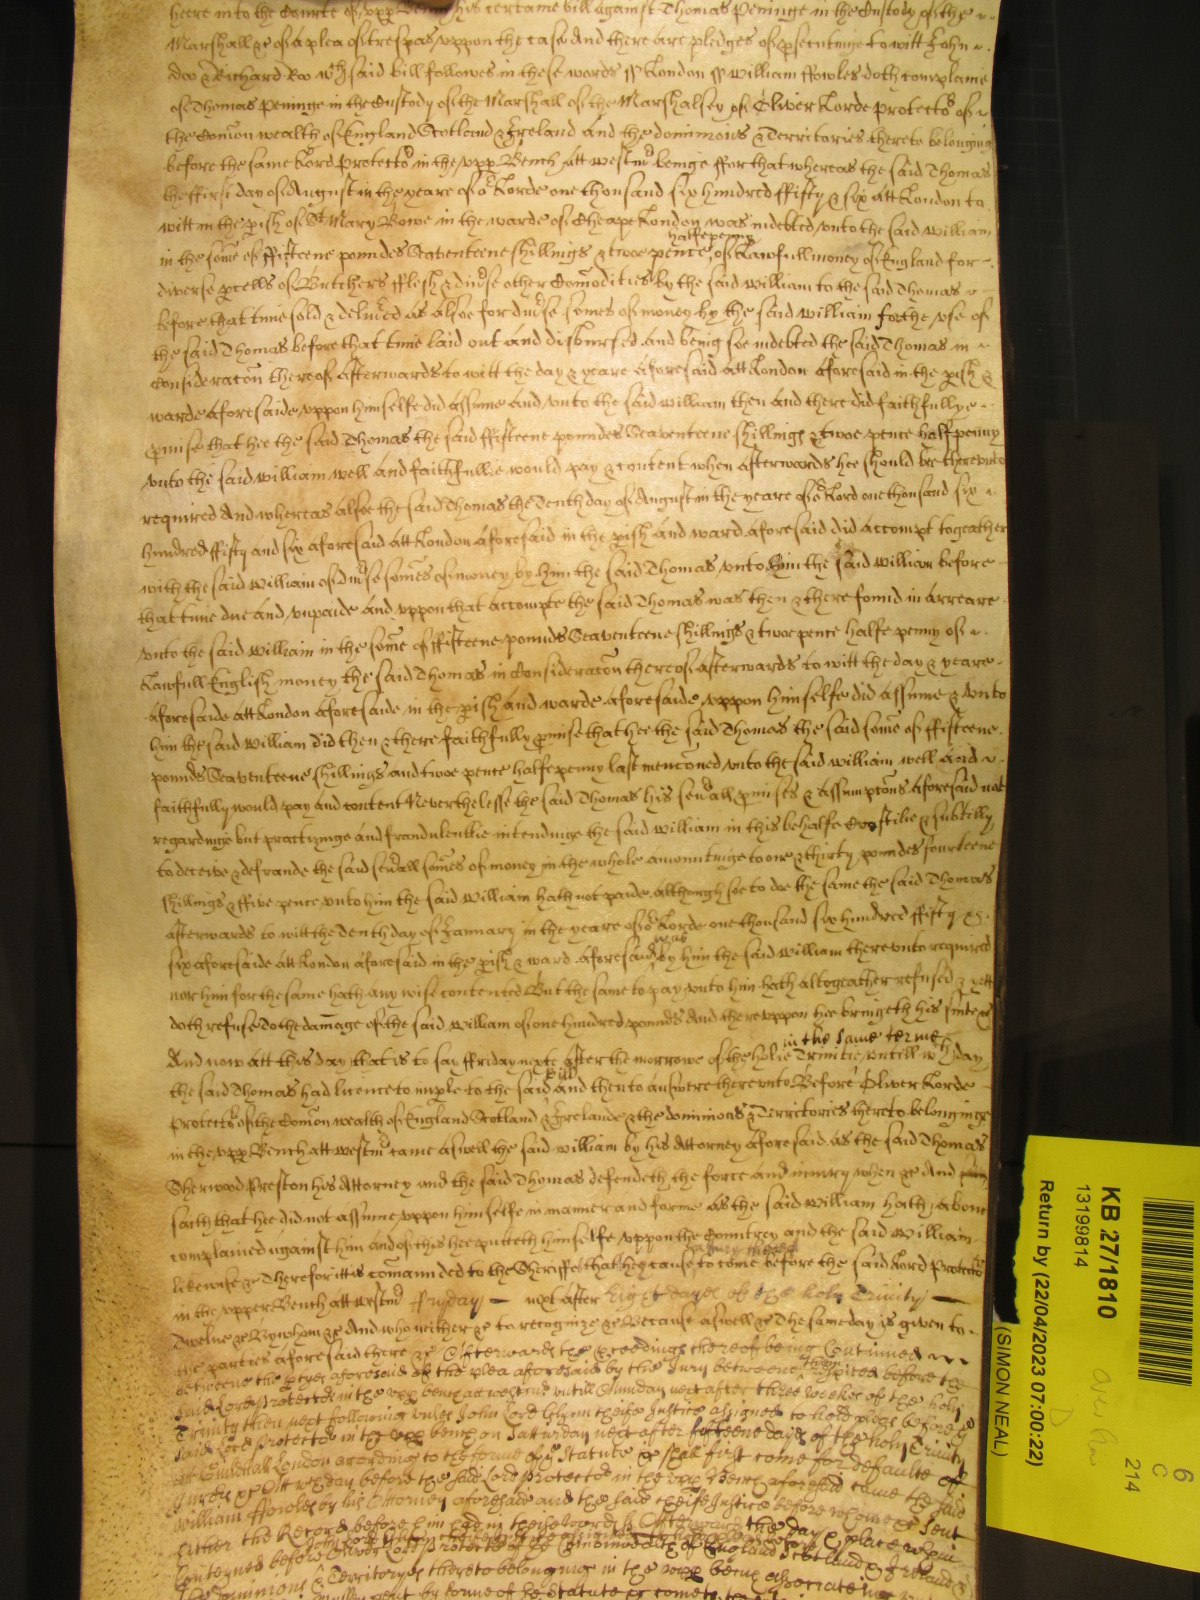 heere into the Courte of upp Bench his certame bill against Thomas Peninge in the Custody of the
Marshall &c of a plea of trespas uppon the case And there are pledges of psecutinge to witt John
doo & Richard Roo wch said bill followes in these words ss London ss William ffowles doth complaine
of Thomas Peninge in the Custody of the Marshall of the Marshalsey of Oliver Lorde Protector of
the Comon wealth of England Scotland & Ireland and the dominions & Territories thereto belonging
before the same Lord Protector in the upp Bench att westmr beinge ffor that whereas the said Thomas
the ffirst day of August in the yeare of or Lorde one thousand six hundred ffifty & six att London to
witt in the pish of St Mary Bowe in the warde of Cheape London was indebted unto the said William
in the some of ffifteene poundes Seaventeene shillings & twoe pence halfe penny of Lawfull money of England for
diverse pcells of Butchers fflesh & divse other Comodities by the said William to the said Thomas
before that time sold & delived as alsoe for divse somes of money by the said William for the use of
the said Thomas before that time laid out and disbursed And being soe indebted the said Thomas in
Consideracon thereof afterwards to witt the day & yeare aforesaid att London aforesaid in the pish &
warde aforesaide uppon himselfe did assume and unto the said William then and there did faithfullye
pmise that hee the said Thomas the said ffifteene poundes Seaventeene shillings & twoe pence halfpenny
unto the said William well and faithfullie would pay & content when afterwards hee should bee thereunto
required And whereas alsoe the said Thomas the Tenth day of August in the yeare of or Lord one thousand six
hundred ffifty and six aforesaid att London aforesaid in the pish and ward aforesaid did accompt togeather
with the said William of divse somes of money by him the said Thomas unto him the said William before
that time due and unpaide and uppon that accompte the said Thomas was then & there found in arreare
unto the said William in the some of ffifteene pounds Seaventeene shillings & twoe pence halfe penny of
Lawfull English money the said Thomas in Consideracon thereof afterwards to witt the day & yeare
aforesaide att London aforesaide in the pish and warde aforesaide uppon himselfe did assume & unto
him the said William did then & there faithfully pmise that hee the said Thomas the said some of ffifteene
pounds Seaventeene shillings and twoe pence halfe penny last menconed unto the said William well and
faithfully would pay and content Neverthelesse the said Thomas his sevall pmises & Assumptions aforesaid not
regardinge but practizinge and fraudulentlie intendinge the said William in this behalfe Craftilie & subtilly
to deceive & defraude the said sevall somes of money in the whole amountinge to one & thirty poundes fourteene
shillings & ffive pence unto him the said William hath not paide although soe to doe the same the said Thomas
afterwards to witt the Tenth day of January in the yeare of or Lorde one thousand six hundred ffifty &
six aforesaide att London aforesaid in the pish & ward aforesaid was by him the said William thereunto required
nor him for the same hath any wise contented But the same to pay unto him hath altogeather refused & yett
doth refuse To the damage of the said William of one hundred pounds And thereuppon hee bringeth his suite &c
And now att this day that is to say ffriday nexte after the morrowe of the holie Trinitie in the same terme untill wch day
the said Thomas had licence to imple to the said bill and then to answere thereunto Before Oliver Lorde
Protector of the Comon wealth of England Scotland & Irelande & the dominions & Territories thereto belonginge
in the upp Bench att westmr came aswell the said William by his Attorney aforesaid as the said Thomas
Sherwood Preston his Attorney and the said Thomas defendeth the force and iniury when &c And
saith that hee did not assume uppon himselfe in manner and forme as the said William hath above
complained against him and of this hee putteth himselfe uppon the Countrey and the said William
likewise &c Therefore itt is comannded to the Sheriffe that hey cause to come before the said Lord Protector
in the upper Bench att westmr ffryday next after Eight dayes of the holy Trinity
Twelve &c By whom &c And who neither &c to recognize &c Because aswell &c The same day is given to
the parties aforesaid there &c Afterwards the pceedings thereof being Continued
betweene the ptyes aforesaid of the plea aforesaid by the Jury betweene them respited before the
said Lord Protector in the upp bench att westmr untill Munday next after three weekes of the holy
Trinity then next following unles John Lord Glynn cheife Justice assigned to hold pleas before the
said Lord Protector in the upp bench on Satturday next after fifteene dayes of the holy Trinity
att Guildhall London according to the forme of ye Statute &c shall first come for defaulte of
Jurors &c Att wch day before the said Lord Protector in the upp Bench aforesaid came the said
William ffowles by his Attorney aforesaid and the said cheife Justice before whome &c Sent
hither the Record before him had in these words ss Afterwards the day & place within
Conteyned before John Lord Glynn
the dominions & Territoryes thereto belonging in the upp bench associateing
by forme of the Statute &c cometh
KB 27/1810
13199814
Return by (22/04/2023 07:00:22)
D
(SIMON NEAL)
6
C
214